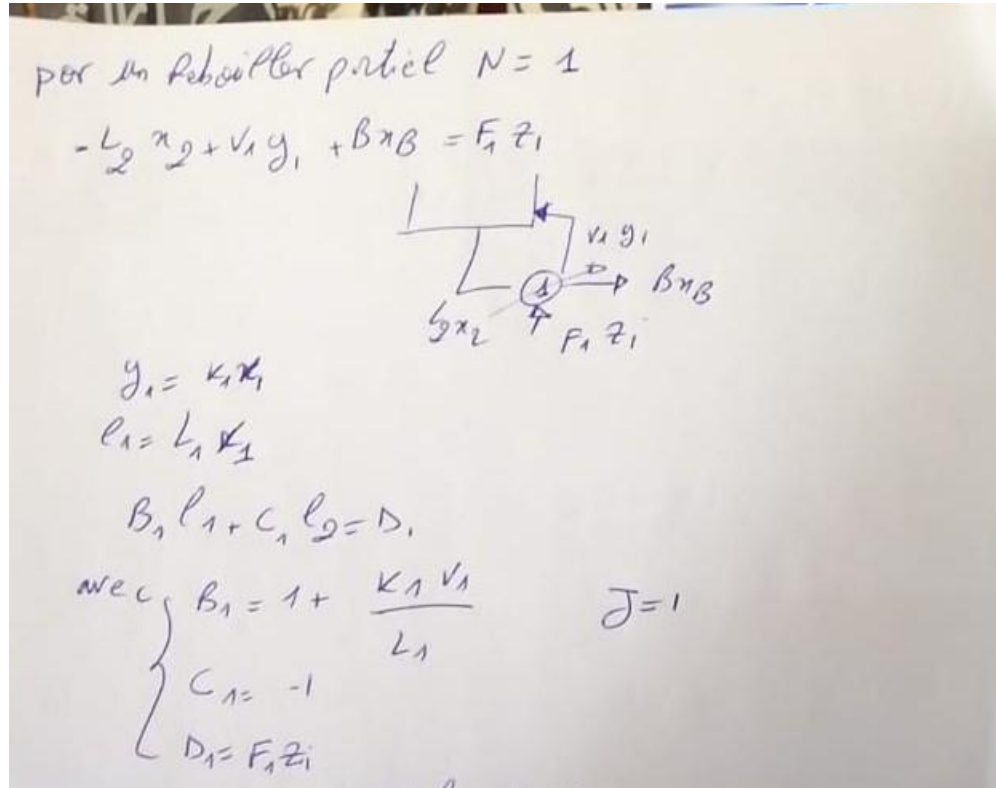 por un Rebouiller partiel N = 1
- L₂ x₂ + V₁ y₁ + B xB = F₁ Z₁
V₁ y₁
1
B xB
L₂x₂
F₁ Zi
y₁ = K₁ x₁
l₁ = L₁ x₁
B₁ l₁ + C₁ l₂ = D₁
avec { B₁ = 1 + K₁ V₁ / L₁
J = 1
C₁ = -1
D₁ = F₁ Zi